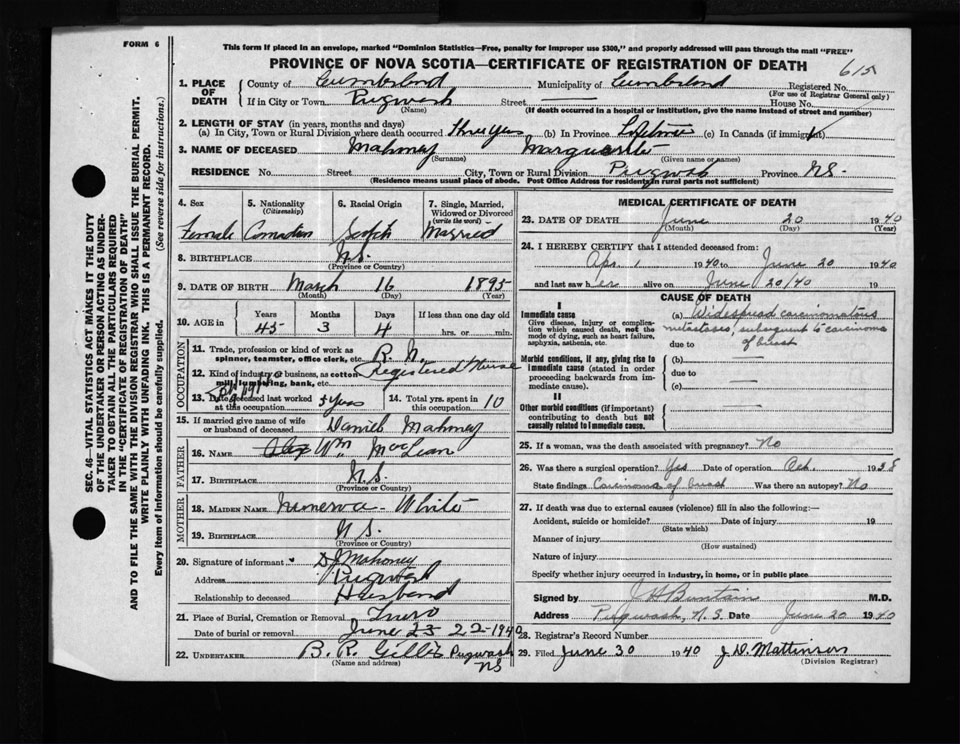 FORM 6
This form if placed in an envelope, marked "Dominion Statistics—Free, penalty for improper use $300," and properly addressed will pass through the mail "FREE"
PROVINCE OF NOVA SCOTIA—CERTIFICATE OF REGISTRATION OF DEATH
615
1. PLACE OF DEATH
County of Cumberland Municipality of Cumberland Registered No.
(For use of Registrar General only)
If in City or Town Pugwash Street — House No.
(Name) (If death occurred in a hospital or institution, give the name instead of street and number)
2. LENGTH OF STAY (in years, months and days)
(a) In City, Town or Rural Division where death occurred three years (b) In Province Lifetime (c) In Canada (if immigrant)
3. NAME OF DECEASED Mahoney Marguerite
(Surname) (Given name or names)
RESIDENCE No. Street City, Town or Rural Division Pugwash Province N.S.
(Residence means usual place of abode. Post Office Address for residents in rural parts not sufficient)
4. Sex 5. Nationality (Citizenship) 6. Racial Origin 7. Single, Married, Widowed or Divorced (write the word)
Female Canadian Scotch Married
8. BIRTHPLACE N.S.
(Province or Country)
9. DATE OF BIRTH March 16 1895
(Month) (Day) (Year)
10. AGE in Years Months Days If less than one day old
45 3 4 hrs. or min.
OCCUPATION
11. Trade, profession or kind of work as spinner, teamster, office clerk, etc. R. N.
12. Kind of industry or business, as cotton mill, lumbering, bank, etc. Registered Nurse
13. Date deceased last worked at this occupation 5 years 14. Total yrs. spent in this occupation 10
15. If married give name of wife or husband of deceased Daniel Mahoney
FATHER
16. NAME Alex Wm MacLean
17. BIRTHPLACE N.S.
(Province or Country)
MOTHER
18. MAIDEN NAME Minerva White
19. BIRTHPLACE N.S.
(Province or Country)
20. Signature of informant D J Mahoney
Address Pugwash
Relationship to deceased Husband
21. Place of Burial, Cremation or Removal Truro
Date of burial or removal June 23 22-1940
22. UNDERTAKER B. R. Gillis Pugwash
(Name and address) NS
MEDICAL CERTIFICATE OF DEATH
23. DATE OF DEATH June 20 1940
(Month) (Day) (Year)
24. I HEREBY CERTIFY that I attended deceased from:
Apr. 1 1940 to June 20 1940
and last saw her alive on June 20/40
CAUSE OF DEATH
I
Immediate cause
Give disease, injury or complication which caused death, not the mode of dying, such as heart failure, asphyxia, asthenia, etc.
(a) Widespread carcinomatous
metastases, subsequent to carcinoma
due to of breast
Morbid conditions, if any, giving rise to immediate cause (stated in order proceeding backwards from immediate cause).
(b) —
due to
(c) —
II
Other morbid conditions (if important) contributing to death but not causally related to immediate cause.
25. If a woman, was the death associated with pregnancy? No
26. Was there a surgical operation? Yes Date of operation Oct. 1938
State findings Carcinoma of breast Was there an autopsy? No
27. If death was due to external causes (violence) fill in also the following:—
Accident, suicide or homicide? Date of injury 19
(State which)
Manner of injury
(How sustained)
Nature of injury
Specify whether injury occurred in industry, in home, or in public place
Signed by J H Buntain M.D.
Address Pugwash, N.S. Date June 20 1940
28. Registrar's Record Number
29. Filed June 30 1940 J. D. Mattinson
(Division Registrar)
SEC. 46—VITAL STATISTICS ACT MAKES IT THE DUTY
OF THE UNDERTAKER OR PERSON ACTING AS UNDER-
TAKER TO OBTAIN ALL THE PARTICULARS REQUIRED
IN THE "CERTIFICATE OF REGISTRATION OF DEATH"
AND TO FILE THE SAME WITH THE DIVISION REGISTRAR WHO SHALL ISSUE THE BURIAL PERMIT.
WRITE PLAINLY WITH UNFADING INK. THIS IS A PERMANENT RECORD.
Every item of information should be carefully supplied. (See reverse side for instructions.)